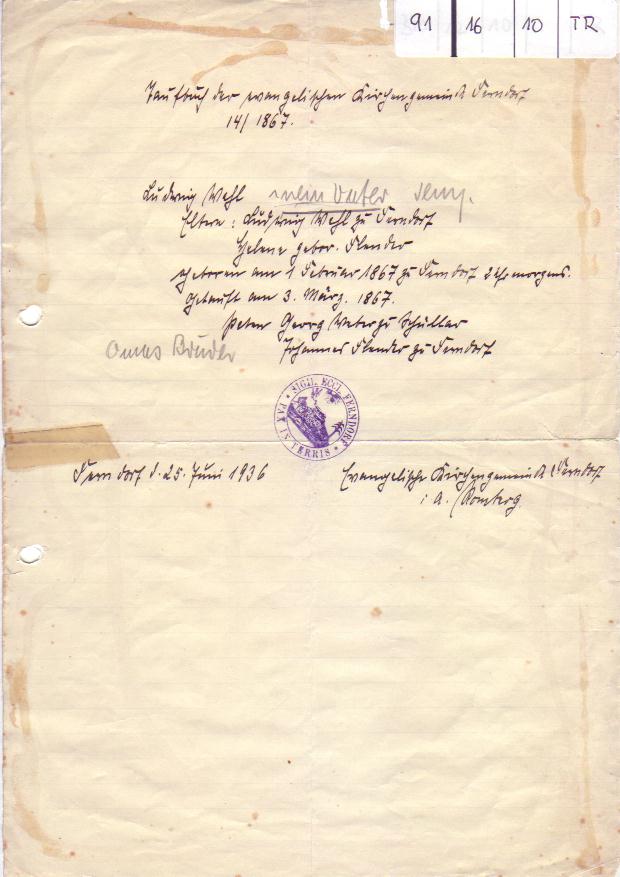 91 16 10 TR
Taufbuch der evangelischen Kirchengemeinde Ferndorf
14/1867.
Ludwig Wehl mein Vater
Eltern: Ludwig Wehl zu Ferndorf
Helene gebor. Flender
geboren am 1 Februar 1867 zu Ferndorf 2 Uhr morgens.
Getauft am 3. März. 1867.
Peter Georg zu
Omas Bruder Johannes Flender zu Ferndorf
SIGIL. ECCL. FERNDORF
PAX IN TERRIS
Ferndorf d. 25. Juni 1936 Evangelische Kirchengemeinde Ferndorf
i. A. Romberg